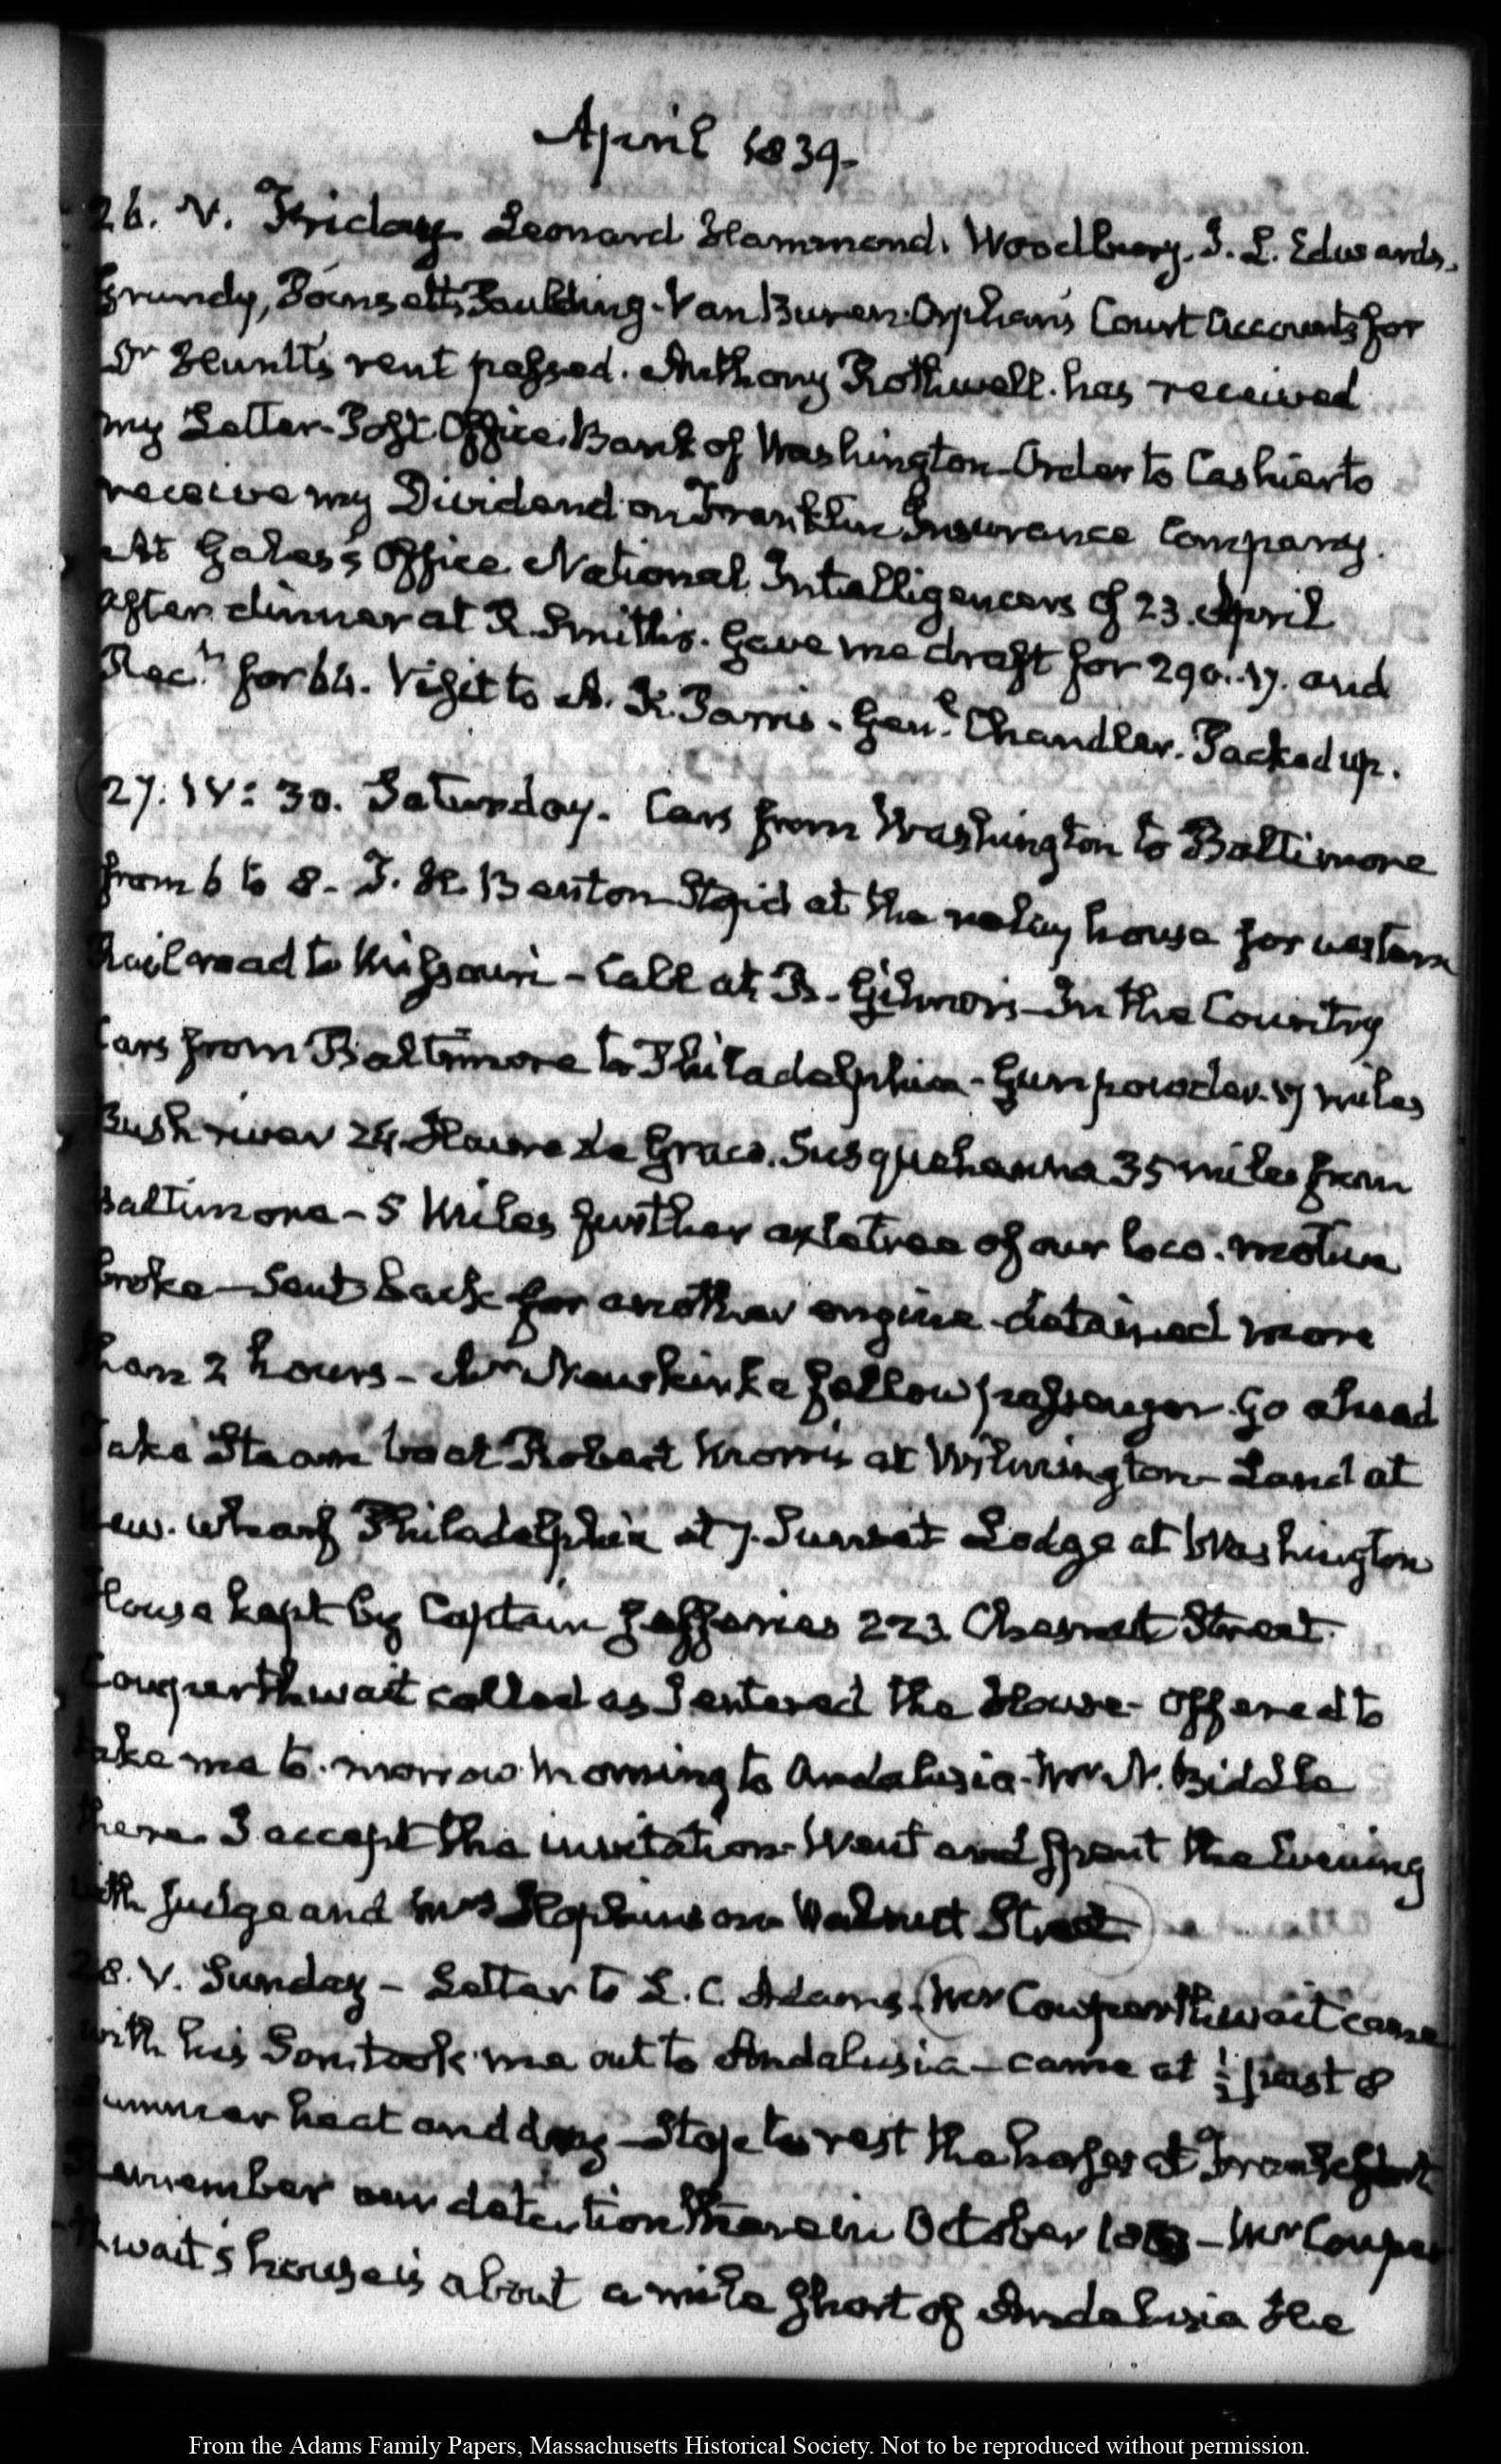 April 1839-
26. V. Friday. Leonard Hammond. Woodbury. J. L. Edwards.
Grundy, Poinsett, Paulding - Van Buren. Orphan's Court Accounts for
Dr Hunt's rent passed. Anthony Rothwell. has received
my Letter. Post Office. Bank of Washington - Order to Cashier to
receive my Dividend on Franklin Insurance Company.
At Gales's Office National Intelligencers of 23. April
after dinner at R. Smith's. Gave me draft for 290..17. and
for 64. Visit to A. K. Parris - Genl. Chandler. Packed up.
27. IV: 30. Saturday. Cars from Washington to Baltimore
from 6 to 8 - T. H. Benton - Staid at the relay house for western
Railroad to Missouri - Call at R. Gilmor's - In the Country
Cars from Baltimore to Philadelphia - Gunpowder. 17 miles
Bush river 24 Havre de Grace. Susquehanna 35 miles from
Baltimore - 5 Miles further axletree of our loco. motive
broke - Sent back for another engine - detained more
than 2 hours - Mr Newkirk a fellow passenger. Go ahead
Take Steam boat Robert Morris at Wilmington - Land at
new. wharf Philadelphia at 7. Sunset Lodge at Washington
House kept by Captain Jefferies 223. Chesnut Street.
Cowperthwait called as I entered the House - Offered to
take me to. morrow Morning to Andalusia - Mr N. Biddle
there. I accept the invitation - Went and spent the Evening
with Judge and Mrs Hopkinson Walnut Street
28. V. Sunday - Letter to L. C. Adams. Mr Cowperthwait came
with his Son took me out to Andalusia - came at ½ past 8
Summer heat and dry - Stop to rest the horses at Frankfort
Remember our detention there in October - Mr Cowper
thwait's house is about a mile short of Andalusia the
From the Adams Family Papers, Massachusetts Historical Society. Not to be reproduced without permission.